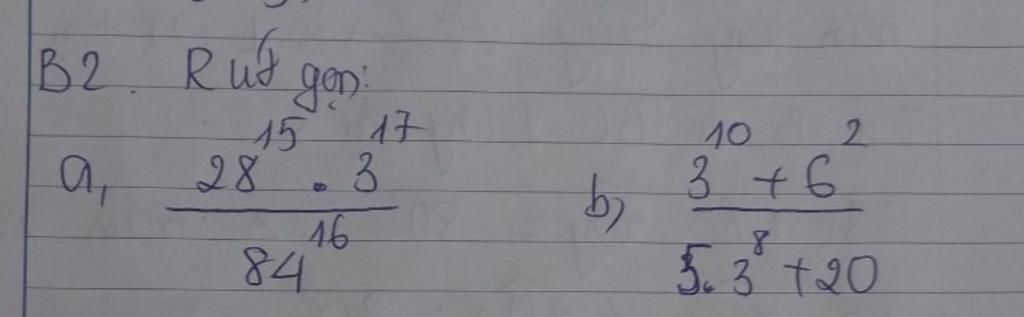 B2. Rút gọn:
a, 28^15 . 3^17 / 84^16
b, 3^10 + 6^2 / 5.3^8 + 20